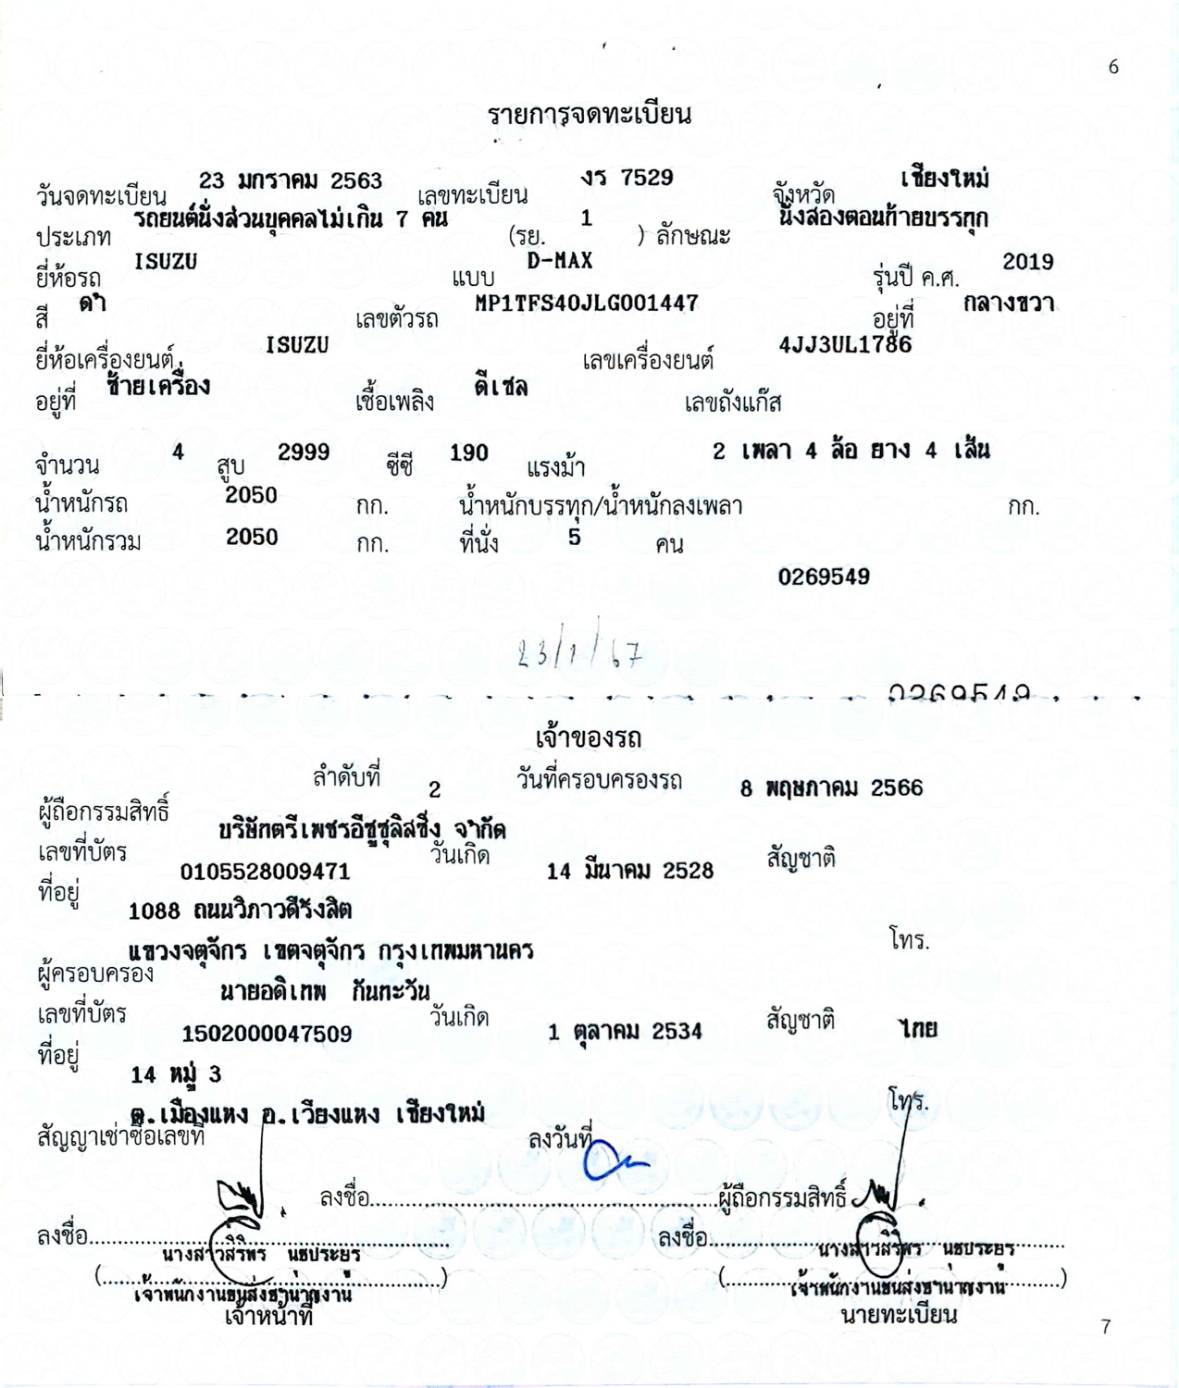 6
รายการจดทะเบียน
วันจดทะเบียน 23 มกราคม 2563 เลขทะเบียน งร 7529 จังหวัด เชียงใหม่
ประเภท รถยนต์นั่งส่วนบุคคลไม่เกิน 7 คน (รย. 1 ) ลักษณะ นั่งสองตอนท้ายบรรทุก
ยี่ห้อรถ ISUZU แบบ D-MAX รุ่นปี ค.ศ. 2019
สี ดำ เลขตัวรถ MP1TFS40JLG001447 อยู่ที่ กลางขวา
ยี่ห้อเครื่องยนต์ ISUZU เลขเครื่องยนต์ 4JJ3UL1786
อยู่ที่ ซ้ายเครื่อง เชื้อเพลิง ดีเซล เลขถังแก๊ส
จำนวน 4 สูบ 2999 ซีซี 190 แรงม้า 2 เพลา 4 ล้อ ยาง 4 เส้น
น้ำหนักรถ 2050 กก. น้ำหนักบรรทุก/น้ำหนักลงเพลา กก.
น้ำหนักรวม 2050 กก. ที่นั่ง 5 คน
0269549
23/1/67
0269549
เจ้าของรถ
ลำดับที่ 2 วันที่ครอบครองรถ 8 พฤษภาคม 2566
ผู้ถือกรรมสิทธิ์ บริษัทตรีเพชรอีซูซุลิสซิ่ง จำกัด
เลขที่บัตร 0105528009471 วันเกิด 14 มีนาคม 2528 สัญชาติ
ที่อยู่ 1088 ถนนวิภาวดีรังสิต
แขวงจตุจักร เขตจตุจักร กรุงเทพมหานคร โทร.
ผู้ครอบครอง นายอดิเทพ กันทะวัน
เลขที่บัตร 1502000047509 วันเกิด 1 ตุลาคม 2534 สัญชาติ ไทย
ที่อยู่ 14 หมู่ 3
ต.เมืองแหง อ.เวียงแหง เชียงใหม่ โทร.
สัญญาเช่าซื้อเลขที่ ลงวันที่
ลงชื่อ ผู้ถือกรรมสิทธิ์
ลงชื่อ ลงชื่อ
นางสาวสิริพร นางสาวสิริพร
เจ้าพนักงานขนส่งชำนาญงาน เจ้าพนักงานขนส่งชำนาญงาน
เจ้าหน้าที่ นายทะเบียน
7